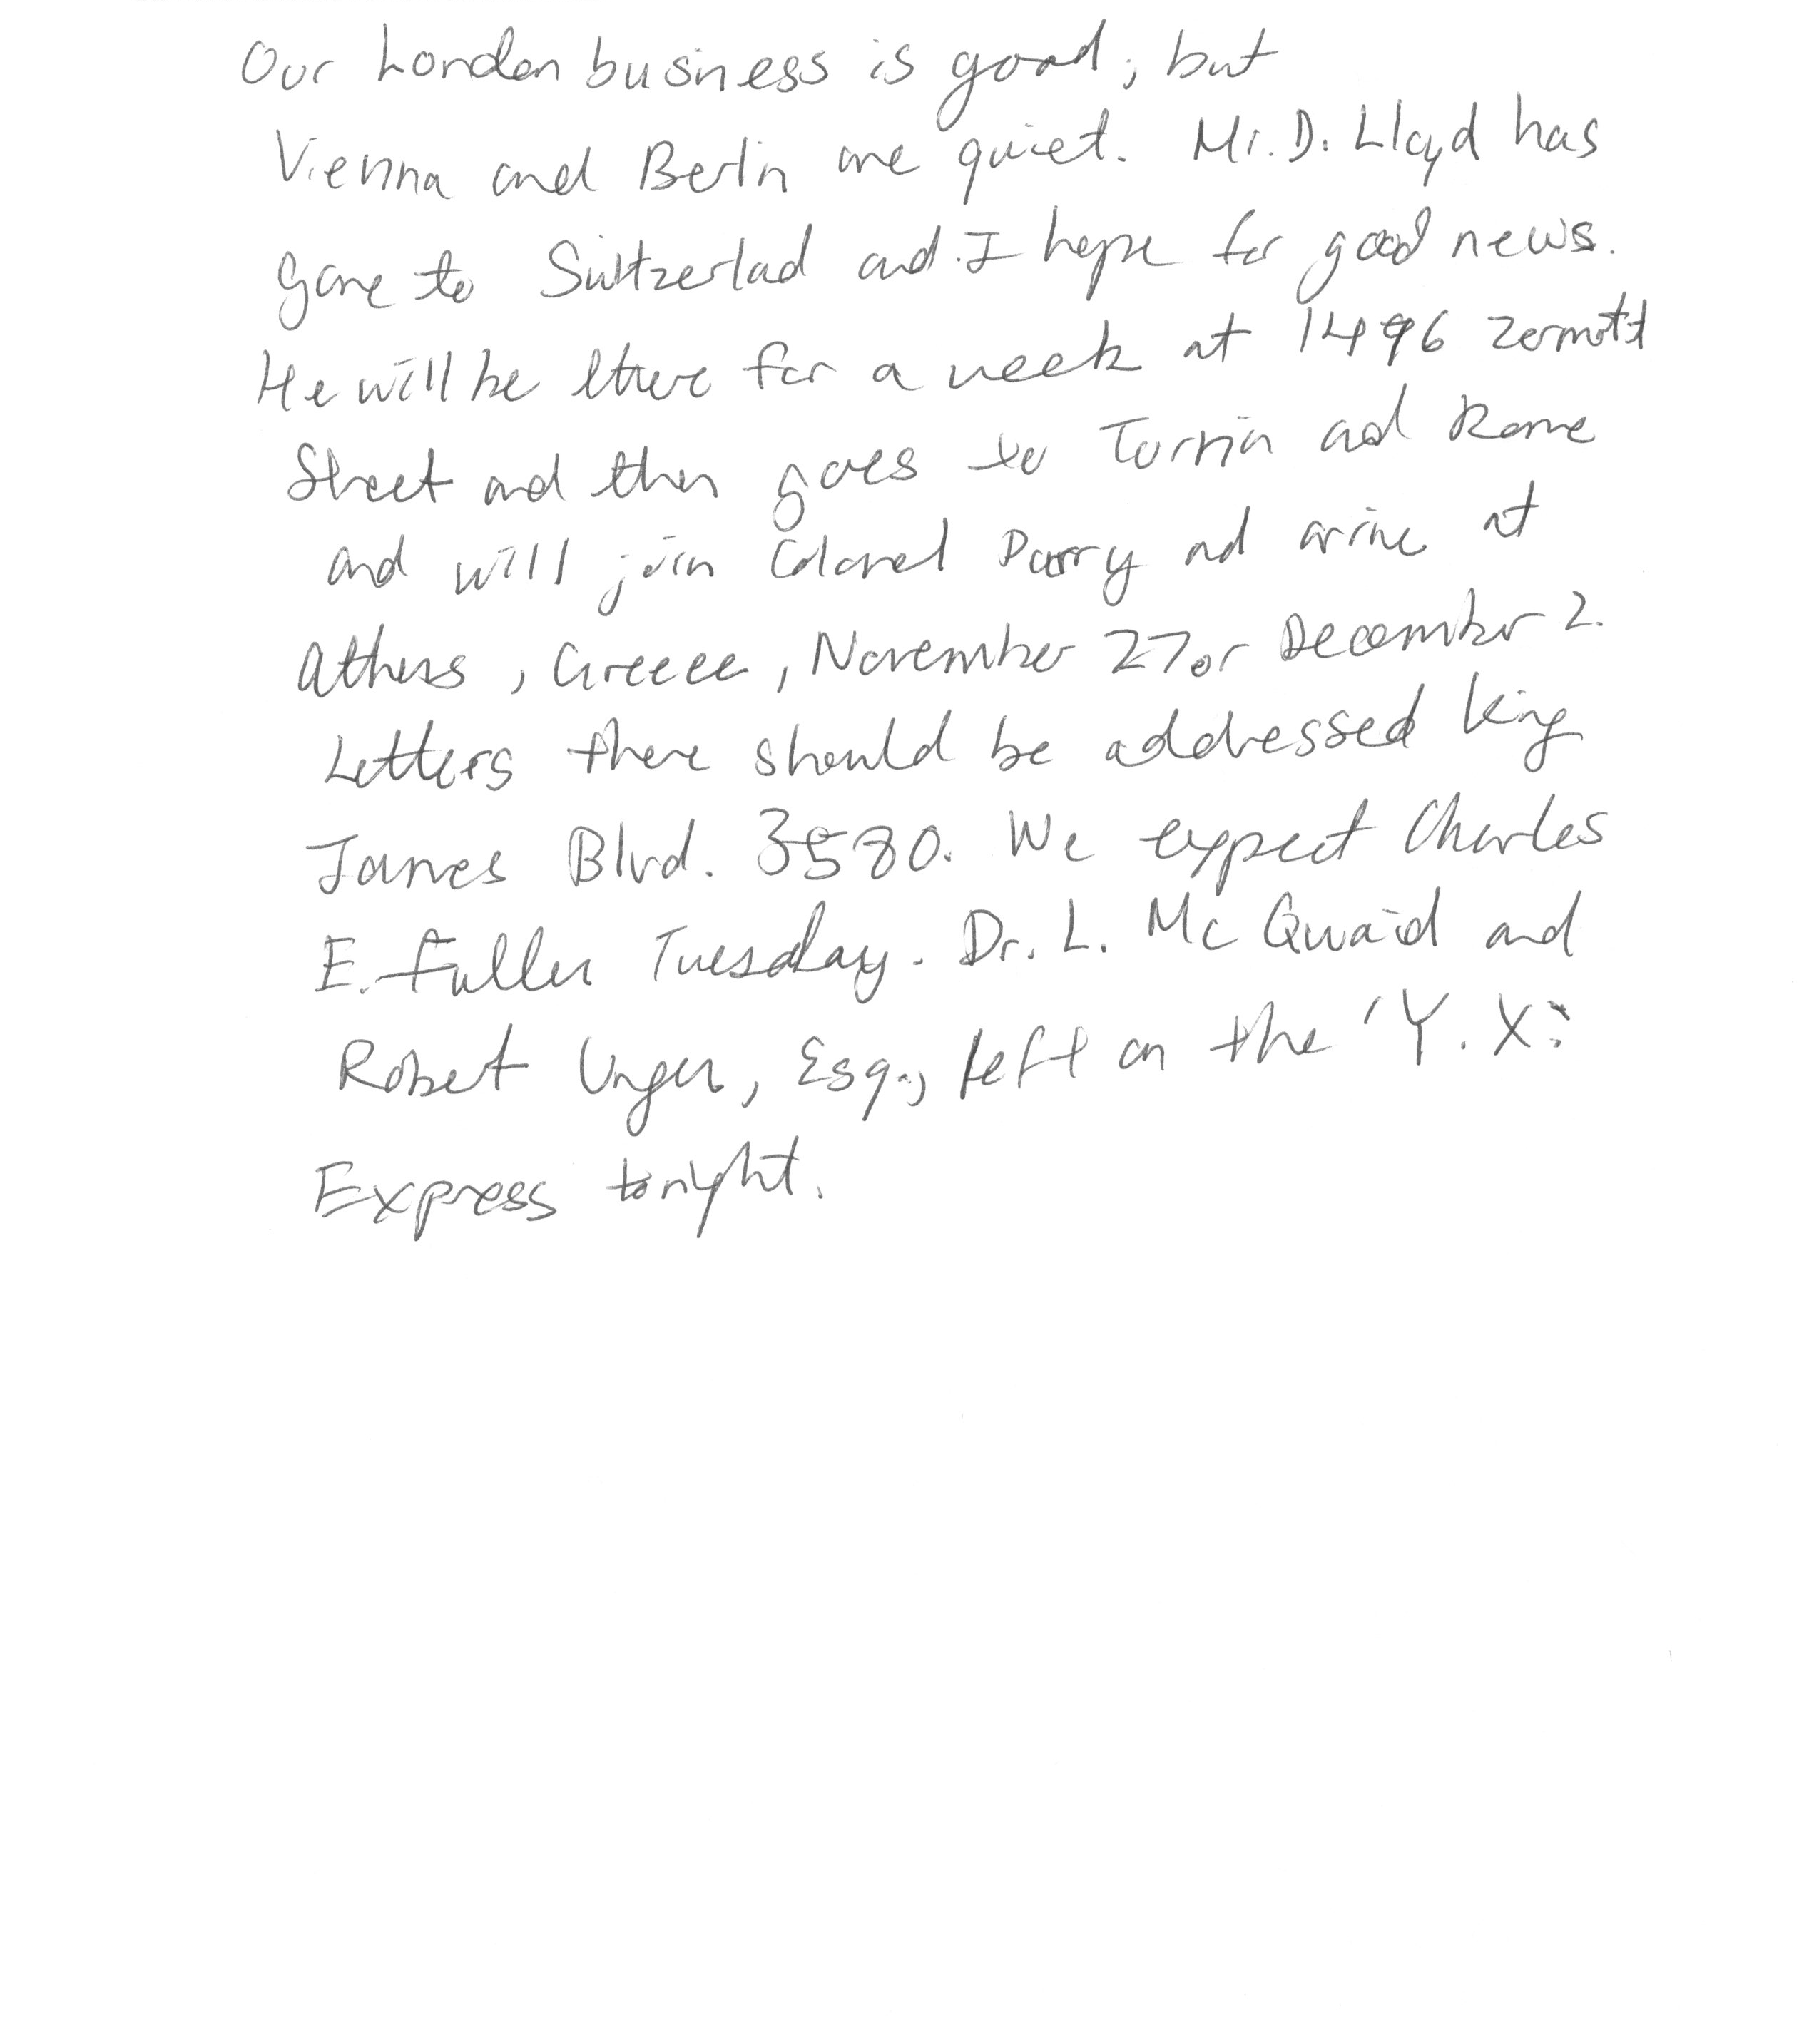 Our London business is good, but
Vienna and Berlin are quiet. Mr. D. Lloyd has
gone to Switzerlad and I hope for good news.
He will be there for a week at 1496 Zermott
Street and then goes to Turin and Rome
and will join Colonel Parry and arrive at
Athens, Greece, November 27 or December 2.
Letters there should be addressed King
James Blvd. 3580. We expect Charles
E. Fuller Tuesday. Dr. L. McQuaid and
Robert Unger, Esq., left on the 'Y.X.'
Express tonight.